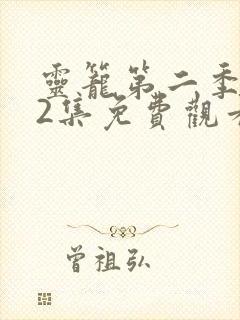 靈籠第二季
2集免費觀
曾祖弘